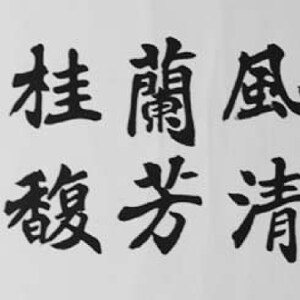 風清
蘭芳
桂馥